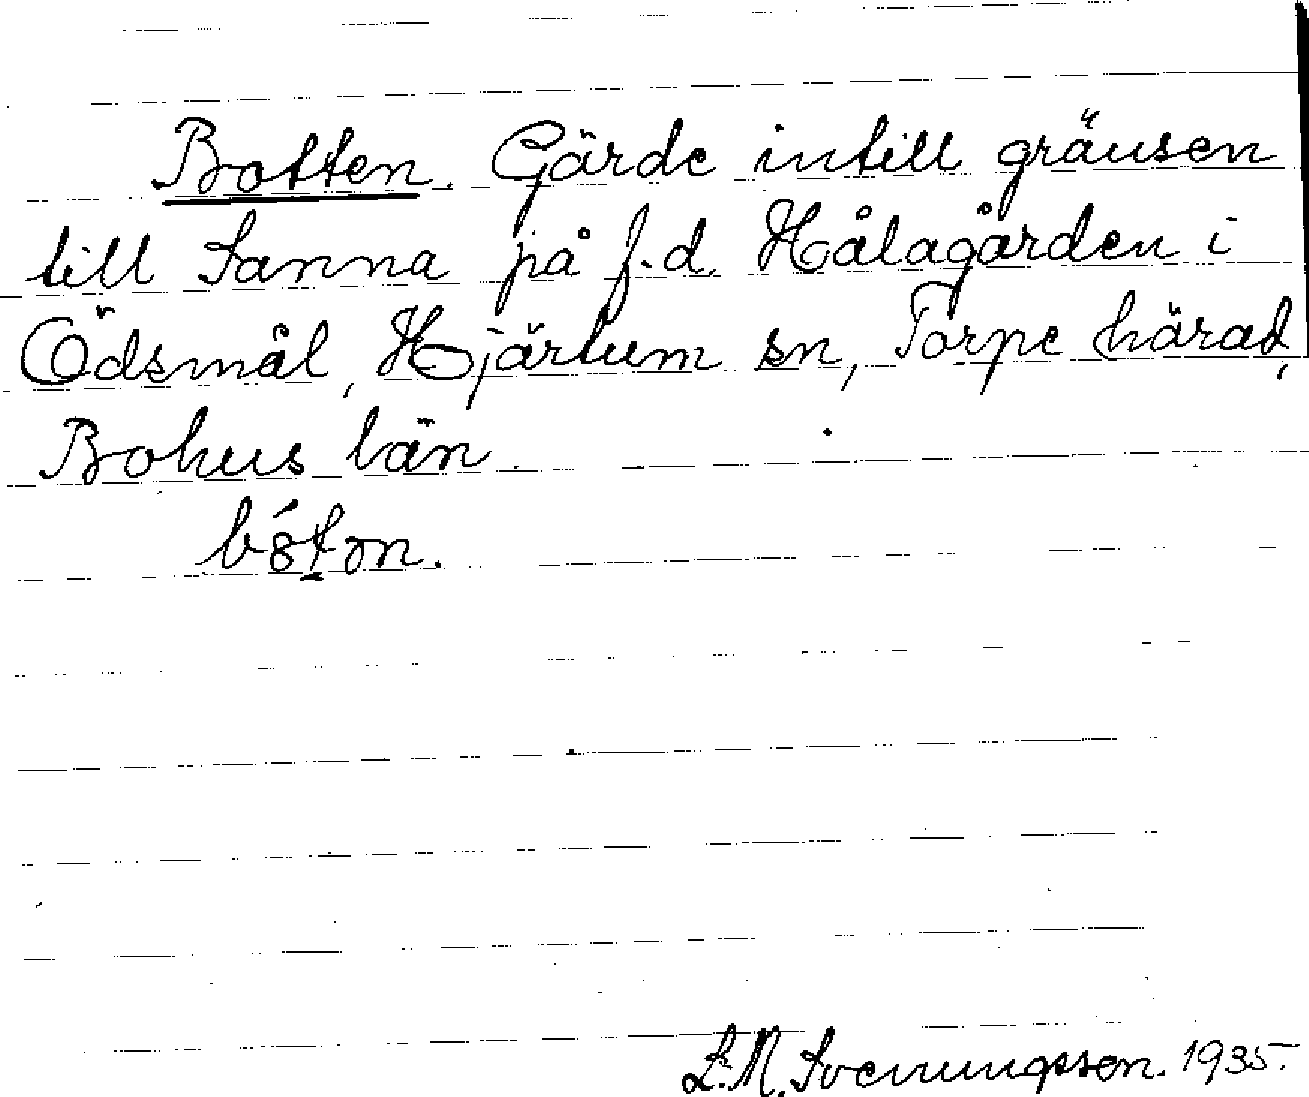 Botten. Gärde intill gränsen
till Sanna på f.d. Hålagården i
Ödsmål, Hjärtum sn, Torpe härad,
Bohus län.
L.M. Svenungsson. 1935.